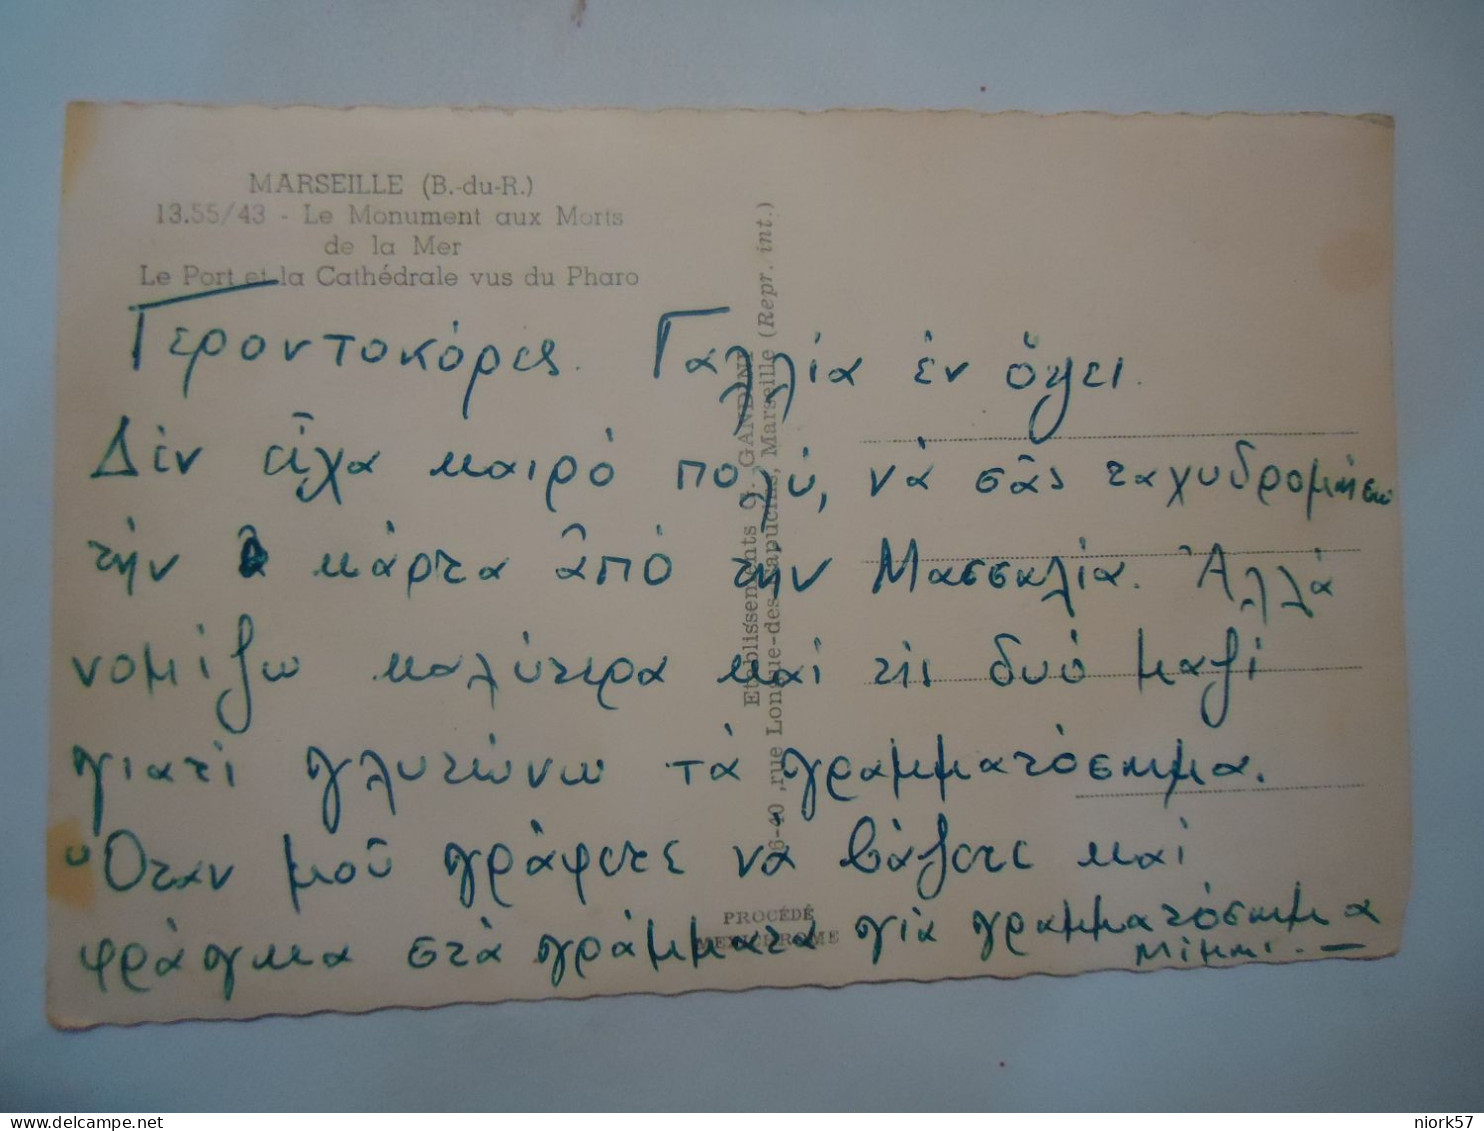 MARSEILLE (B.-du-R.)
13.55/43 - Le Monument aux Morts
de la Mer
Le Port et la Cathédrale vus du Pharo
Γεροντοκόρες. Γαλλία ἐν ὄψει.
Δὲν εἶχα καιρό πολύ, νά σᾶς ταχυδρομήσω
τήν κάρτα ἀπό τήν Μασσαλία. Ἀλλά
νομίζω καλύτερα καί τίς δυό μαζί
γιατί γλυτώνω τά γραμματόσημα.
Ὅταν μοῦ γράφετε νά βάζετε καί
φράγκα στά γράμματα γιά γραμματόσημα
Μίμι. —
Etablissements G. GANDINI
36-40, rue Longue-des-Capucins, Marseille (Repr. int.)
PROCÉDÉ
MEXICHROME
niork57